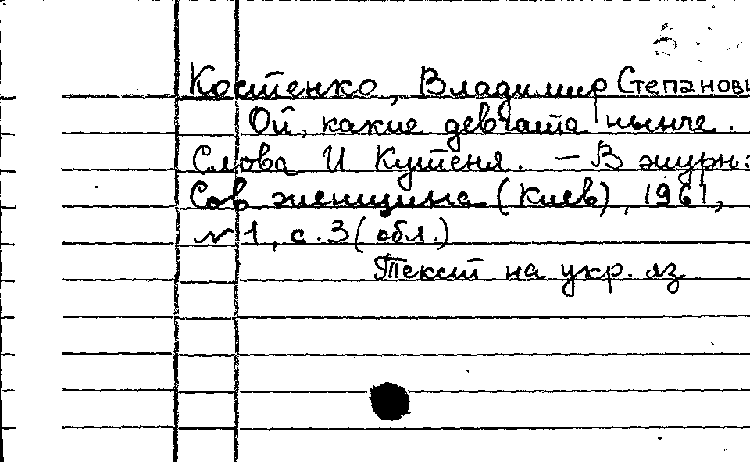 Костенко, Владимир Степанови
Ой, какие девчата нынче.
Слова И Кутеня. – В журн:
Сов женщина (Киев), 1961,
№1, с. 3 (обл.)
Текст на укр. яз